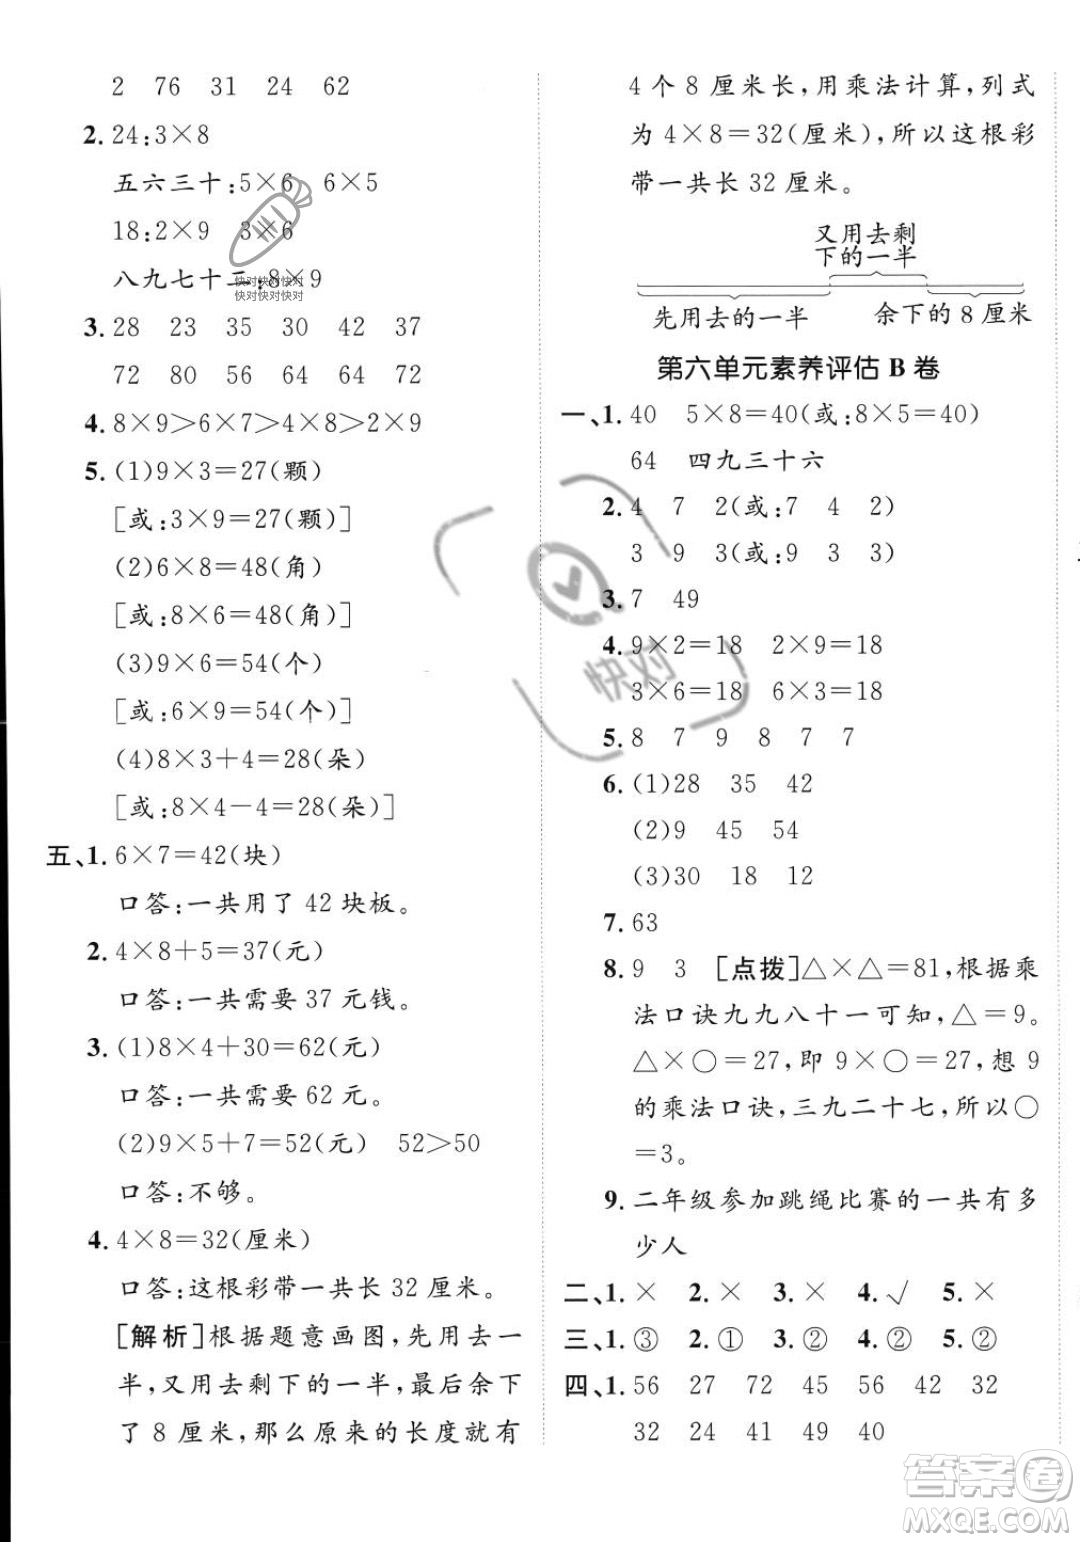 2 76 31 24 62
2. 24:3×8
五六三十:5×6 6×5
18:2×9 3×6
八九七十二:8×9
快对快对快对
快对快对快对
3. 28 23 35 30 42 37
72 80 60 24 72 80
4. 8×9＞6×7＞4×8＞2×9
5. (1)9×3＝27(颗)
[或:3×9＝27(颗)]
(2)6×8＝48(角)
[或:8×6＝48(角)]
(3)9×6＝54(个)
[或:6×9＝54(个)]
(4)8×3＋4＝28(朵)
[或:8×4－4＝28(朵)]
五、1. 6×7＝42(块)
口答:一共用了 42 块板。
2. 4×8＋5＝37(元)
口答:一共需要 37 元钱。
3. (1)8×4＋30＝62(元)
口答:一共需要 62 元。
(2)9×5＋7＝52(元) 52＞50
口答:不够。
4. 4×8＝32(厘米)
口答:这根彩带一共长 32 厘米。
[解析]根据题意画图,先用去一
半,又用去剩下的一半,最后余下
了 8 厘米,那么原来的长度就有
4 个 8 厘米长,用乘法计算,列式
为 4×8＝32(厘米),所以这根彩
带一共长 32 厘米。
又用去剩
下的一半
先用去的一半 余下的 8 厘米
第六单元素养评估 B 卷
一、1. 40 5×8＝40(或:8×5＝40)
64 四九三十六
2. 4 7 2(或:7 4 2)
3 9 3(或:9 3 3)
3. 7 49
4. 9×2＝18 2×9＝18
3×6＝18 6×3＝18
快对
5. 8 7 9 8 7 7
6. (1)28 35 42
(2)9 45 54
(3)30 18 12
7. 63
8. 9 3 [点拨]△×△＝81,根据乘
法口诀九九八十一可知,△＝9。
△×○＝27,即 9×○＝27,想 9
的乘法口诀,三九二十七,所以○
＝3。
9. 二年级参加跳绳比赛的一共有多
少人
二、1. × 2. × 3. × 4. √ 5. ×
三、1. ③ 2. ① 3. ② 4. ② 5. ②
四、1. 56 27 72 45 56 42 32
32 24 41 49 40
答案圈
MXQE.COM